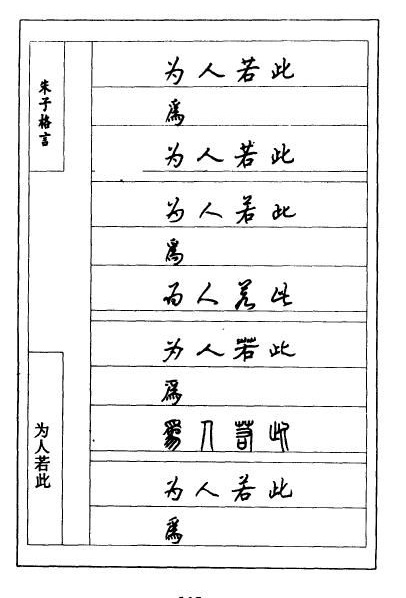 朱子格言
为人若此
为人若此
爲
为人若此
为人若此
爲
为人若此
为人若此
爲
爲人若此
为人若此
爲